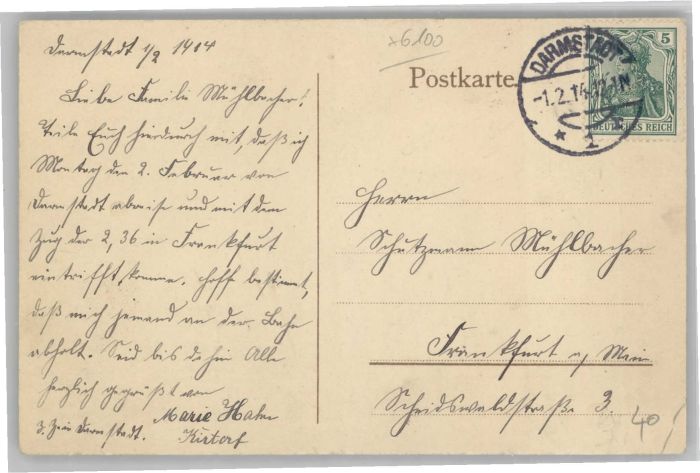 Darmstadt 1/2 1914
Liebe Familie Mühlbacher!
Teile Euch hiedurch mit, daß ich
Montag den 2. Februar von
Darmstadt abreise und mit dem
Zug der 2,36 in Frankfurt
eintrifft, komme. hoff bestimmt,
daß mich jemand an der Bahn
abholt. Seid bis dahin Alle
herzlich gegrüßt von
Marie Hahn
3. Zt in Darmstadt. Kirtorf
x6100
Postkarte
DARMSTADT
-1.2.14.
* 1 *
5
DEUTSCHES REICH
Herrn
Schutzmann Mühlbacher
Frankfurt a/Main
Scheidswaldstraße 3.
40